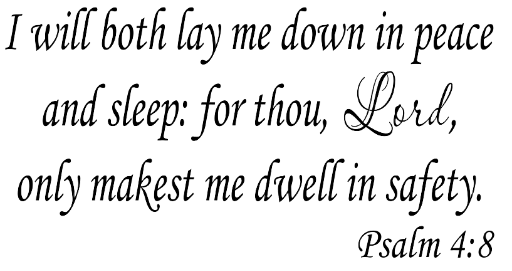 I will both lay me down in peace
and sleep: for thou, Lord,
only makest me dwell in safety.
Psalm 4:8